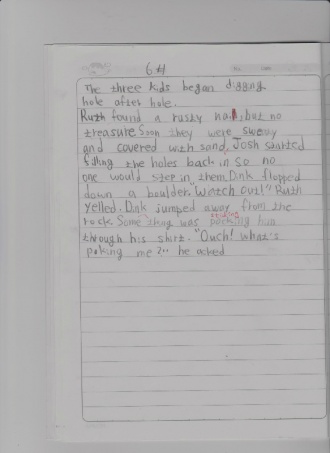 6주
The three kids began digging
hole after hole.
Ruth found a rusty nail, but no
treasure Soon they were sweaty
and covered with sand, Josh started
filling the holes back in so no
one would step in them. Dink flopped
down a boulder. "Watch out!" Ruth
yelled. Dink jumped away from the
rock. Some thing was poking him
through his shirt. "Ouch! What's
poking me?" he asked